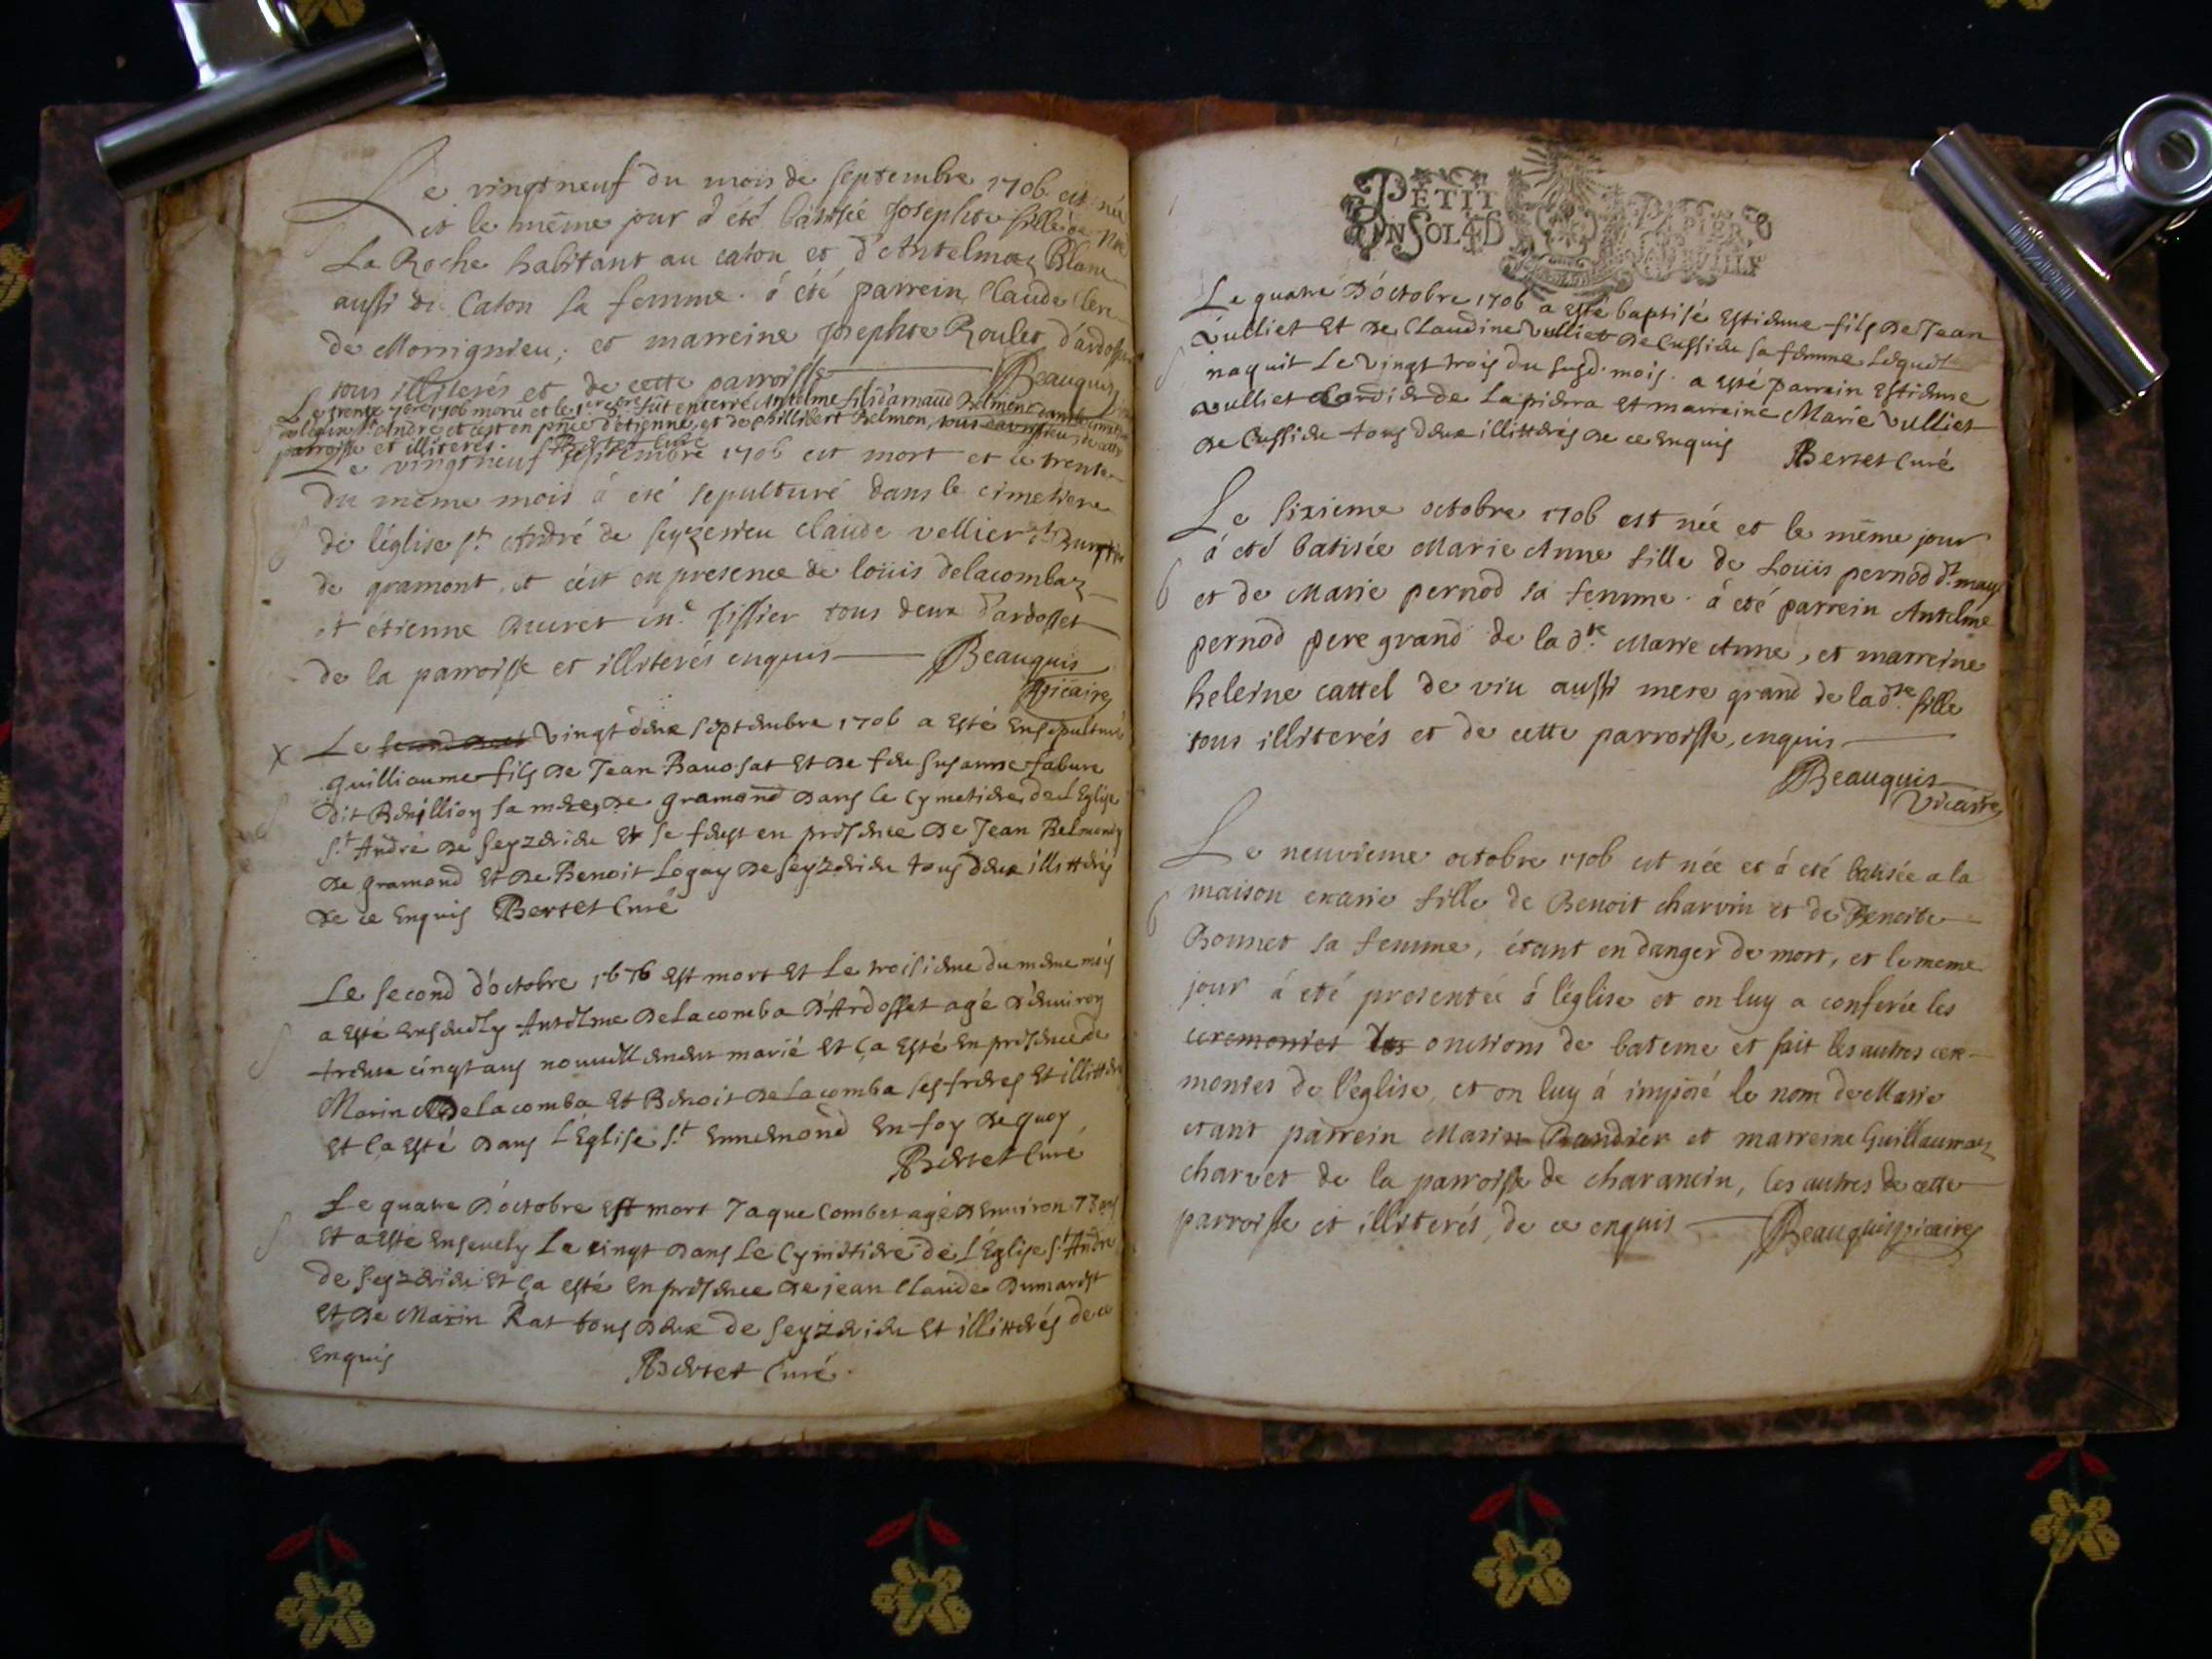 Le vingt neuf du mois de septembre 1706 est née
et le même jour à été batisée Josephte fille de
La Roche habitant au caton et d'Antelmaz Blanc
aussi du Caton sa femme. à été parrein Claude Clerc
de Morrignieu; et marreine Josephte Roulet d'ardosset
tous illiterés et de cette parroisse Beauquis
Le trente 7bre 1706 moru et le 1er 8bre fût enterré Antelme fils d'arnaud Belmond dans le
de léglise St André et cest en pnce d'étienne, et de phillibert Belmon, tous de cette
parroisse et illiterés. Bertet Curé
Le vingt neuf septembre 1706 est mort et le trente
du même mois à été sepulturé dans le cimetiere
de léglise St André de seyzerieu claude vellier dt
de gramont, et cést en presence de loüis delacombaz
et étienne tissier tous deux d'ardosset
de la parroisse et illiterés enquis Beauquis
Vicaire
X Le vingt deux septembre 1706 a esté ensepulturé
guilliaume fils de Jean Bavosat et de feu susanne fabure
dit Revillion sa mere de gramond dans le cymetiere de l Eglise
St André de seyzerieu et se feust en presence de Jean Belmond
de gramond et de Benoit Logay de seyzerieu tous deux illitterés
de ce enquis Bertet Curé
Le second d'octobre 1676 est mort et Le troisieme du meme mois
a esté ensevely Antelme Delacomba d'Ardosset agé d'environ
trente cinqt ans nouvellement marié et ça esté en presence de
Marin Delacomba et Benoit Delacomba ses freres et illitterés
et ça esté dans L'Eglise St Ennemond en foy de quoy
Bertet Curé
Le quatre d'octobre est mort Jaque Combet agé d'environ 73 ans
et a esté ensevely Le cinqt dans Le Cymetiere de L'Église St André
de seyzerieu et ça esté en presence de jean Claude Dumarest
et de Marin Rat tous deux de seyzerieu et illitterés de ce
enquis Bertet Curé.
PETIT PAPIER
UN SOL 4 D
Le quatre d'octobre 1706 a esté baptisé Estienne fils de Jean
vulliet et de Claudine vulliet de Cussieu sa femme Lequel
naquit Le vingt trois du susd. mois. a esté parrain Estienne
vulliet de Lapierra et marraine Marie vulliet
de Cussieu tous deux illitterés de ce enquis
Bertet Curé
Le sixieme octobre 1706 est née et le même jour
à eté batisée Marie Anne fille de Loüis pernod dt may
et de Marie pernod sa femme. à eté parrein Antelme
pernod pere grand de la dte Marie Anne, et marreine
heleine cattel de viu aussi mere grand de la dte fille
tous illiterés et de cette parroisse, enquis
Beauquis
Vicaire
Le neuvieme octobre 1706 est née et à eté batisée a la
maison marie fille de Benoit charvin et de Benoite
Bonnet sa femme, étant en danger de mort, et le meme
jour à eté presentée à léglise et on luy a conferée les
ceremonies des onctions de bateme et fait les autres cere-
monies de l'église, et on luy à imposé le nom de Marie
etant parrein Marin Randier et marreine Guillaumaz
charvet de la parroisse de charancin, les autres de cette
parroisse et illiterés, de ce enquis Beauquis vicaire